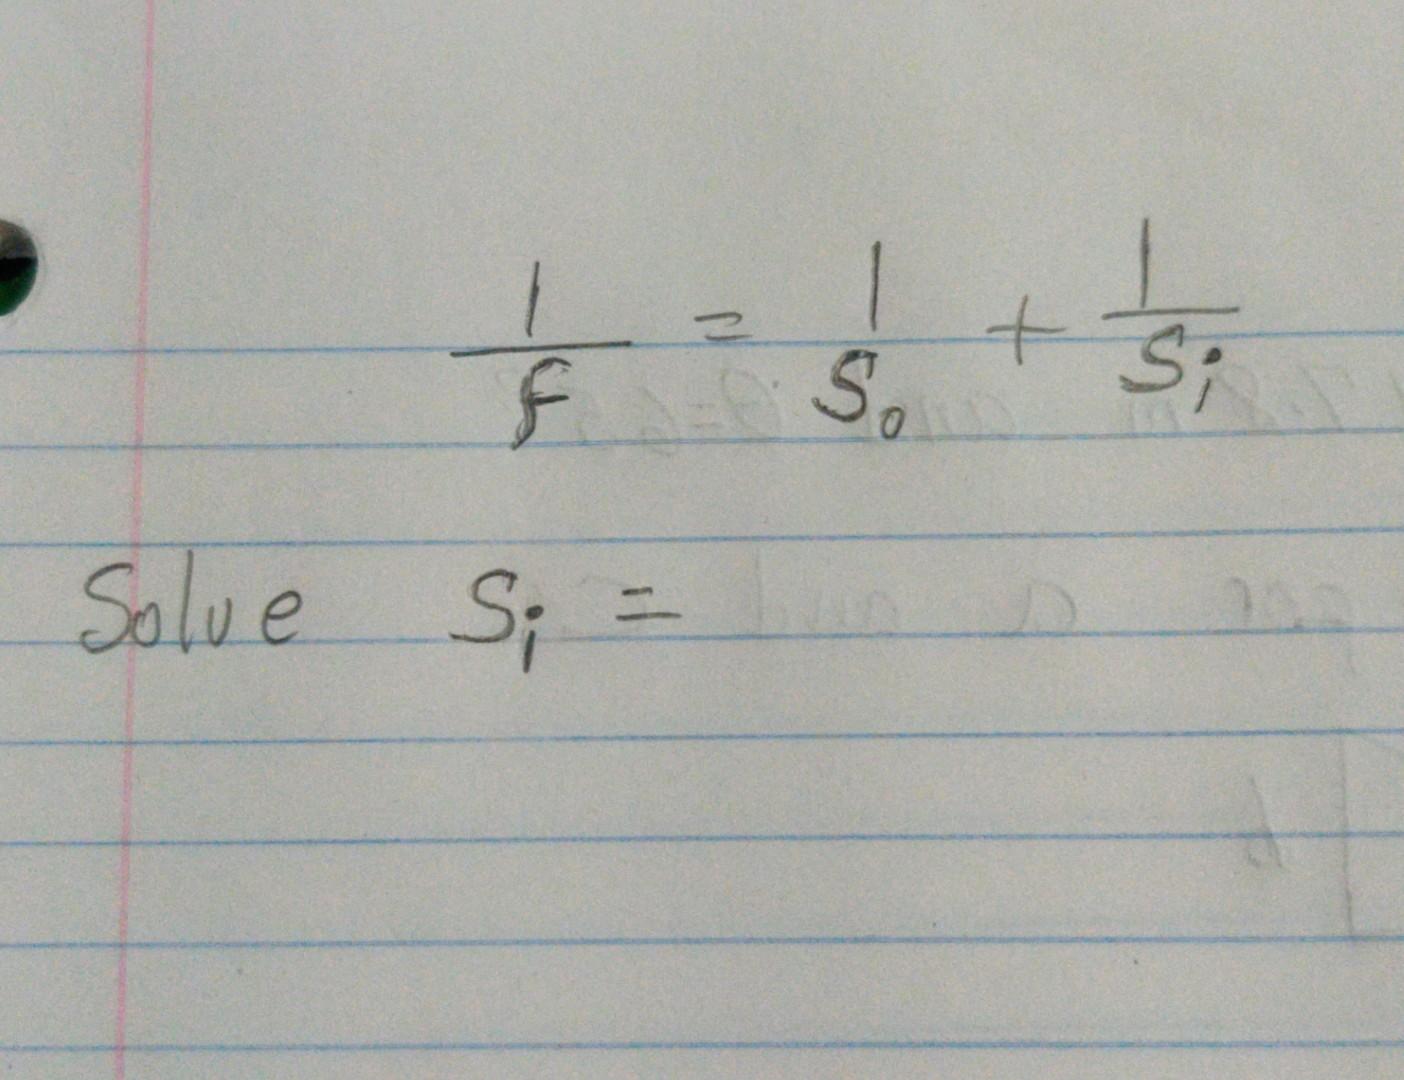 1/f = 1/S₀ + 1/Sᵢ
Solve Sᵢ =